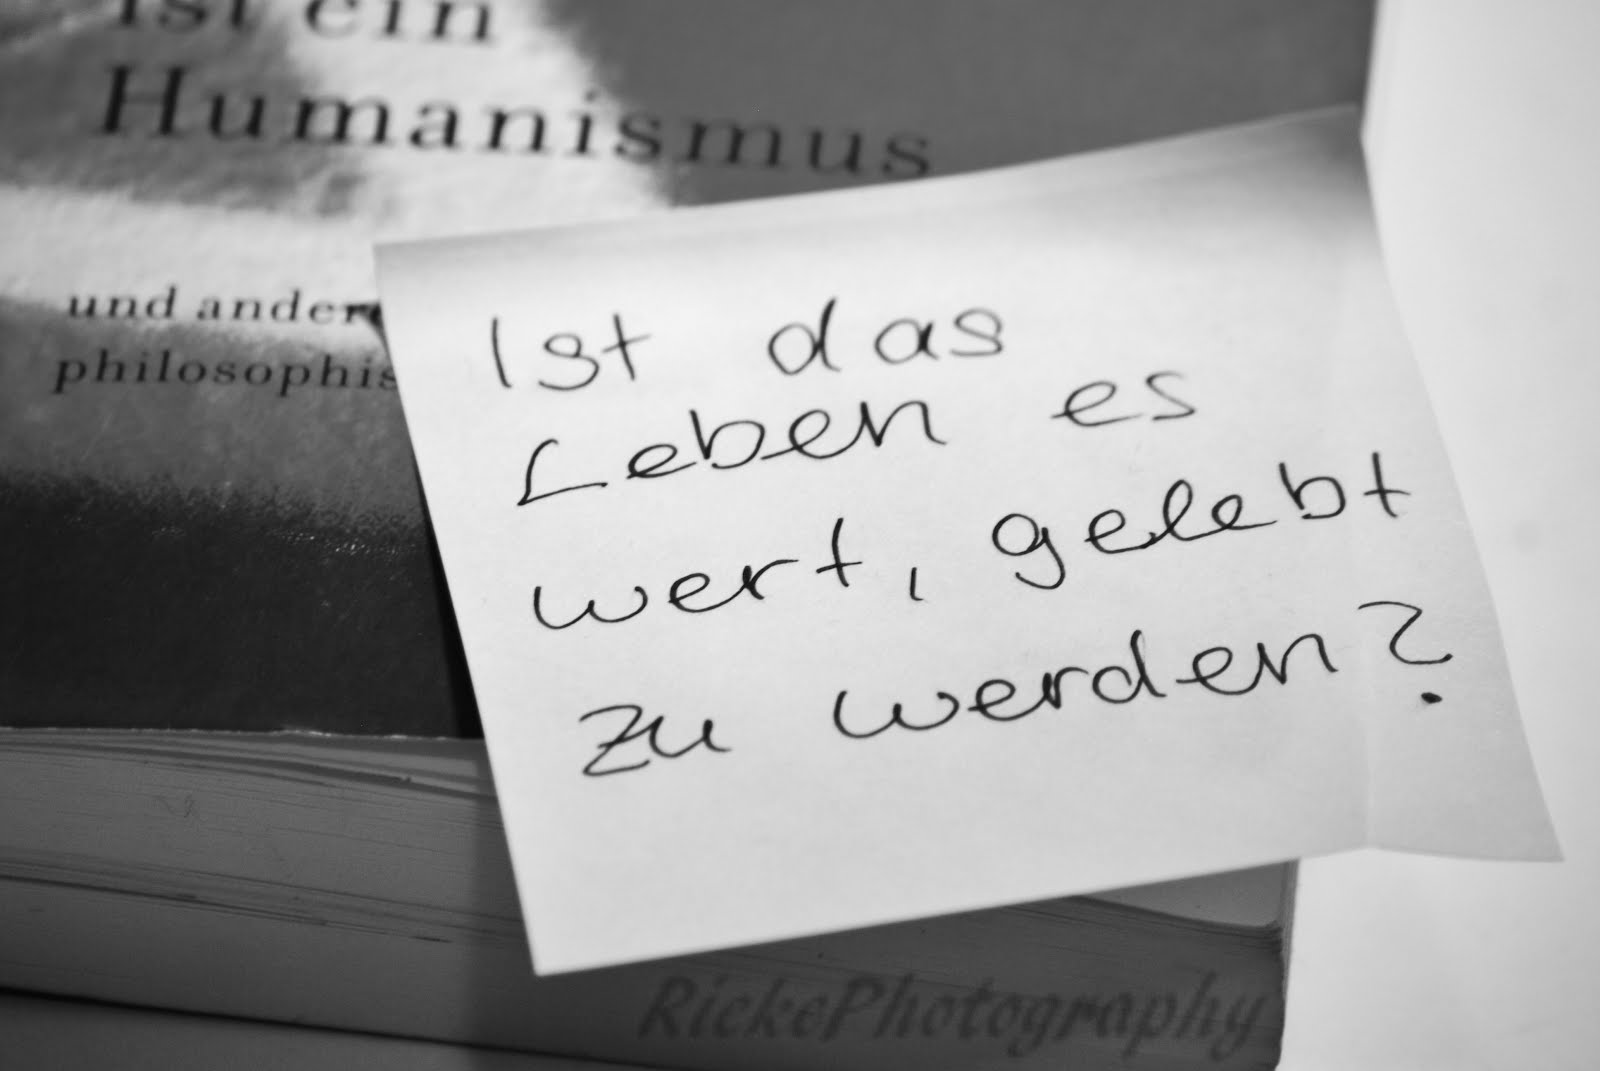 ist ein
Humanismus
und andere
philosophis
Ist das
Leben es
wert, gelebt
zu werden?
RickePhotography